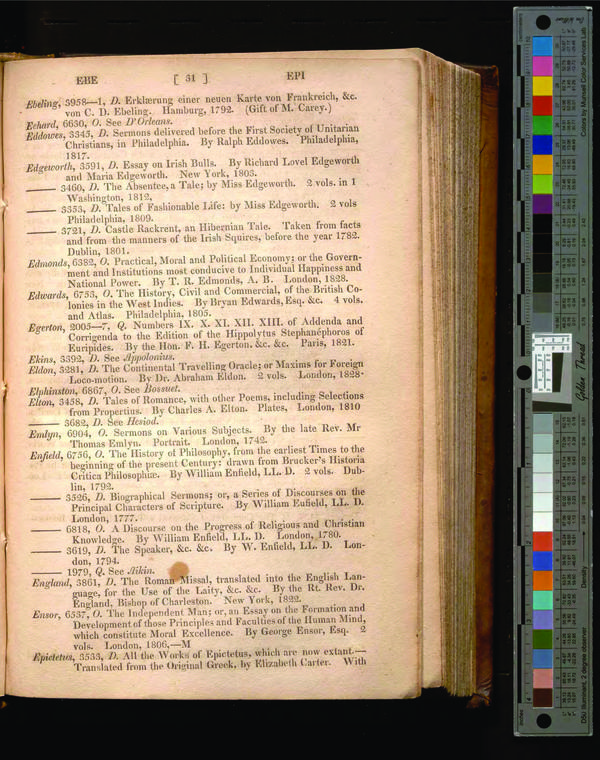 EBE [ 51 ] EPI
Ebeling, 3958—1, D. Erklærung einer neuen Karte von Frankreich, &c.
von C. D. Ebeling. Hamburg, 1792. (Gift of M. Carey.)
Echard, 6630, O. See D'Orleans.
Eddowes, 3345, D. Sermons delivered before the First Society of Unitarian
Christians, in Philadelphia. By Ralph Eddowes. Philadelphia,
1817.
Edgeworth, 3591, D. Essay on Irish Bulls. By Richard Lovel Edgeworth
and Maria Edgeworth. New York, 1803.
—— 3460, D. The Absentee, a Tale; by Miss Edgeworth. 2 vols. in 1
Washington, 1812.
—— 3353, D. Tales of Fashionable Life: by Miss Edgeworth. 2 vols
Philadelphia, 1809.
—— 3721, D. Castle Rackrent, an Hibernian Tale. Taken from facts
and from the manners of the Irish Squires, before the year 1782.
Dublin, 1801.
Edmonds, 6382, O. Practical, Moral and Political Economy; or the Govern-
ment and Institutions most conducive to Individual Happiness and
National Power. By T. R. Edmonds, A. B. London, 1828.
Edwards, 6753, O. The History, Civil and Commercial, of the British Co-
lonies in the West Indies. By Bryan Edwards, Esq. &c. 4 vols.
and Atlas. Philadelphia, 1805.
Egerton, 2005—7, Q. Numbers IX. X. XI. XII. XIII. of Addenda and
Corrigenda to the Edition of the Hippolytus Stephanephoros of
Euripides. By the Hon. F. H. Egerton, &c. &c. Paris, 1821.
Ekins, 3392, D. See Appolonius.
Eldon, 3281, D. The Continental Travelling Oracle; or Maxims for Foreign
Loco-motion. By Dr. Abraham Eldon. 2 vols. London, 1828.
Elphinston, 6867, O. See Bossuet.
Elton, 3458, D. Tales of Romance, with other Poems, including Selections
from Propertius. By Charles A. Elton. Plates, London, 1810
—— 3682, D. See Hesiod.
Emlyn, 6904, O. Sermons on Various Subjects. By the late Rev. Mr
Thomas Emlyn. Portrait. London, 1742.
Enfield, 6756, O. The History of Philosophy, from the earliest Times to the
beginning of the present Century: drawn from Brucker's Historia
Critica Philosophiæ. By William Enfield, LL. D. 2 vols. Dub-
lin, 1792.
—— 3526, D. Biographical Sermons; or, a Series of Discourses on the
Principal Characters of Scripture. By William Enfield, LL. D.
London, 1777.
—— 6818, O. A Discourse on the Progress of Religious and Christian
Knowledge. By William Enfield, LL. D. London, 1780.
—— 3619, D. The Speaker, &c. &c. By W. Enfield, LL. D. Lon-
don, 1794.
—— 1979, Q. See Aikin.
England, 3861, D. The Roman Missal, translated into the English Lan-
guage, for the Use of the Laity, &c. &c. By the Rt. Rev. Dr.
England, Bishop of Charleston. New York, 1822.
Ensor, 6537, O. The Independent Man; or, an Essay on the Formation and
Development of those Principles and Faculties of the Human Mind,
which constitute Moral Excellence. By George Ensor, Esq. 2
vols. London, 1806.—M
Epictetus, 3533, D. All the Works of Epictetus, which are now extant.—
Translated from the Original Greek, by Elizabeth Carter. With
Colors by Munsell Color Services Lab
Golden Thread
Density
D50 Illuminant, 2 degree observer
inches